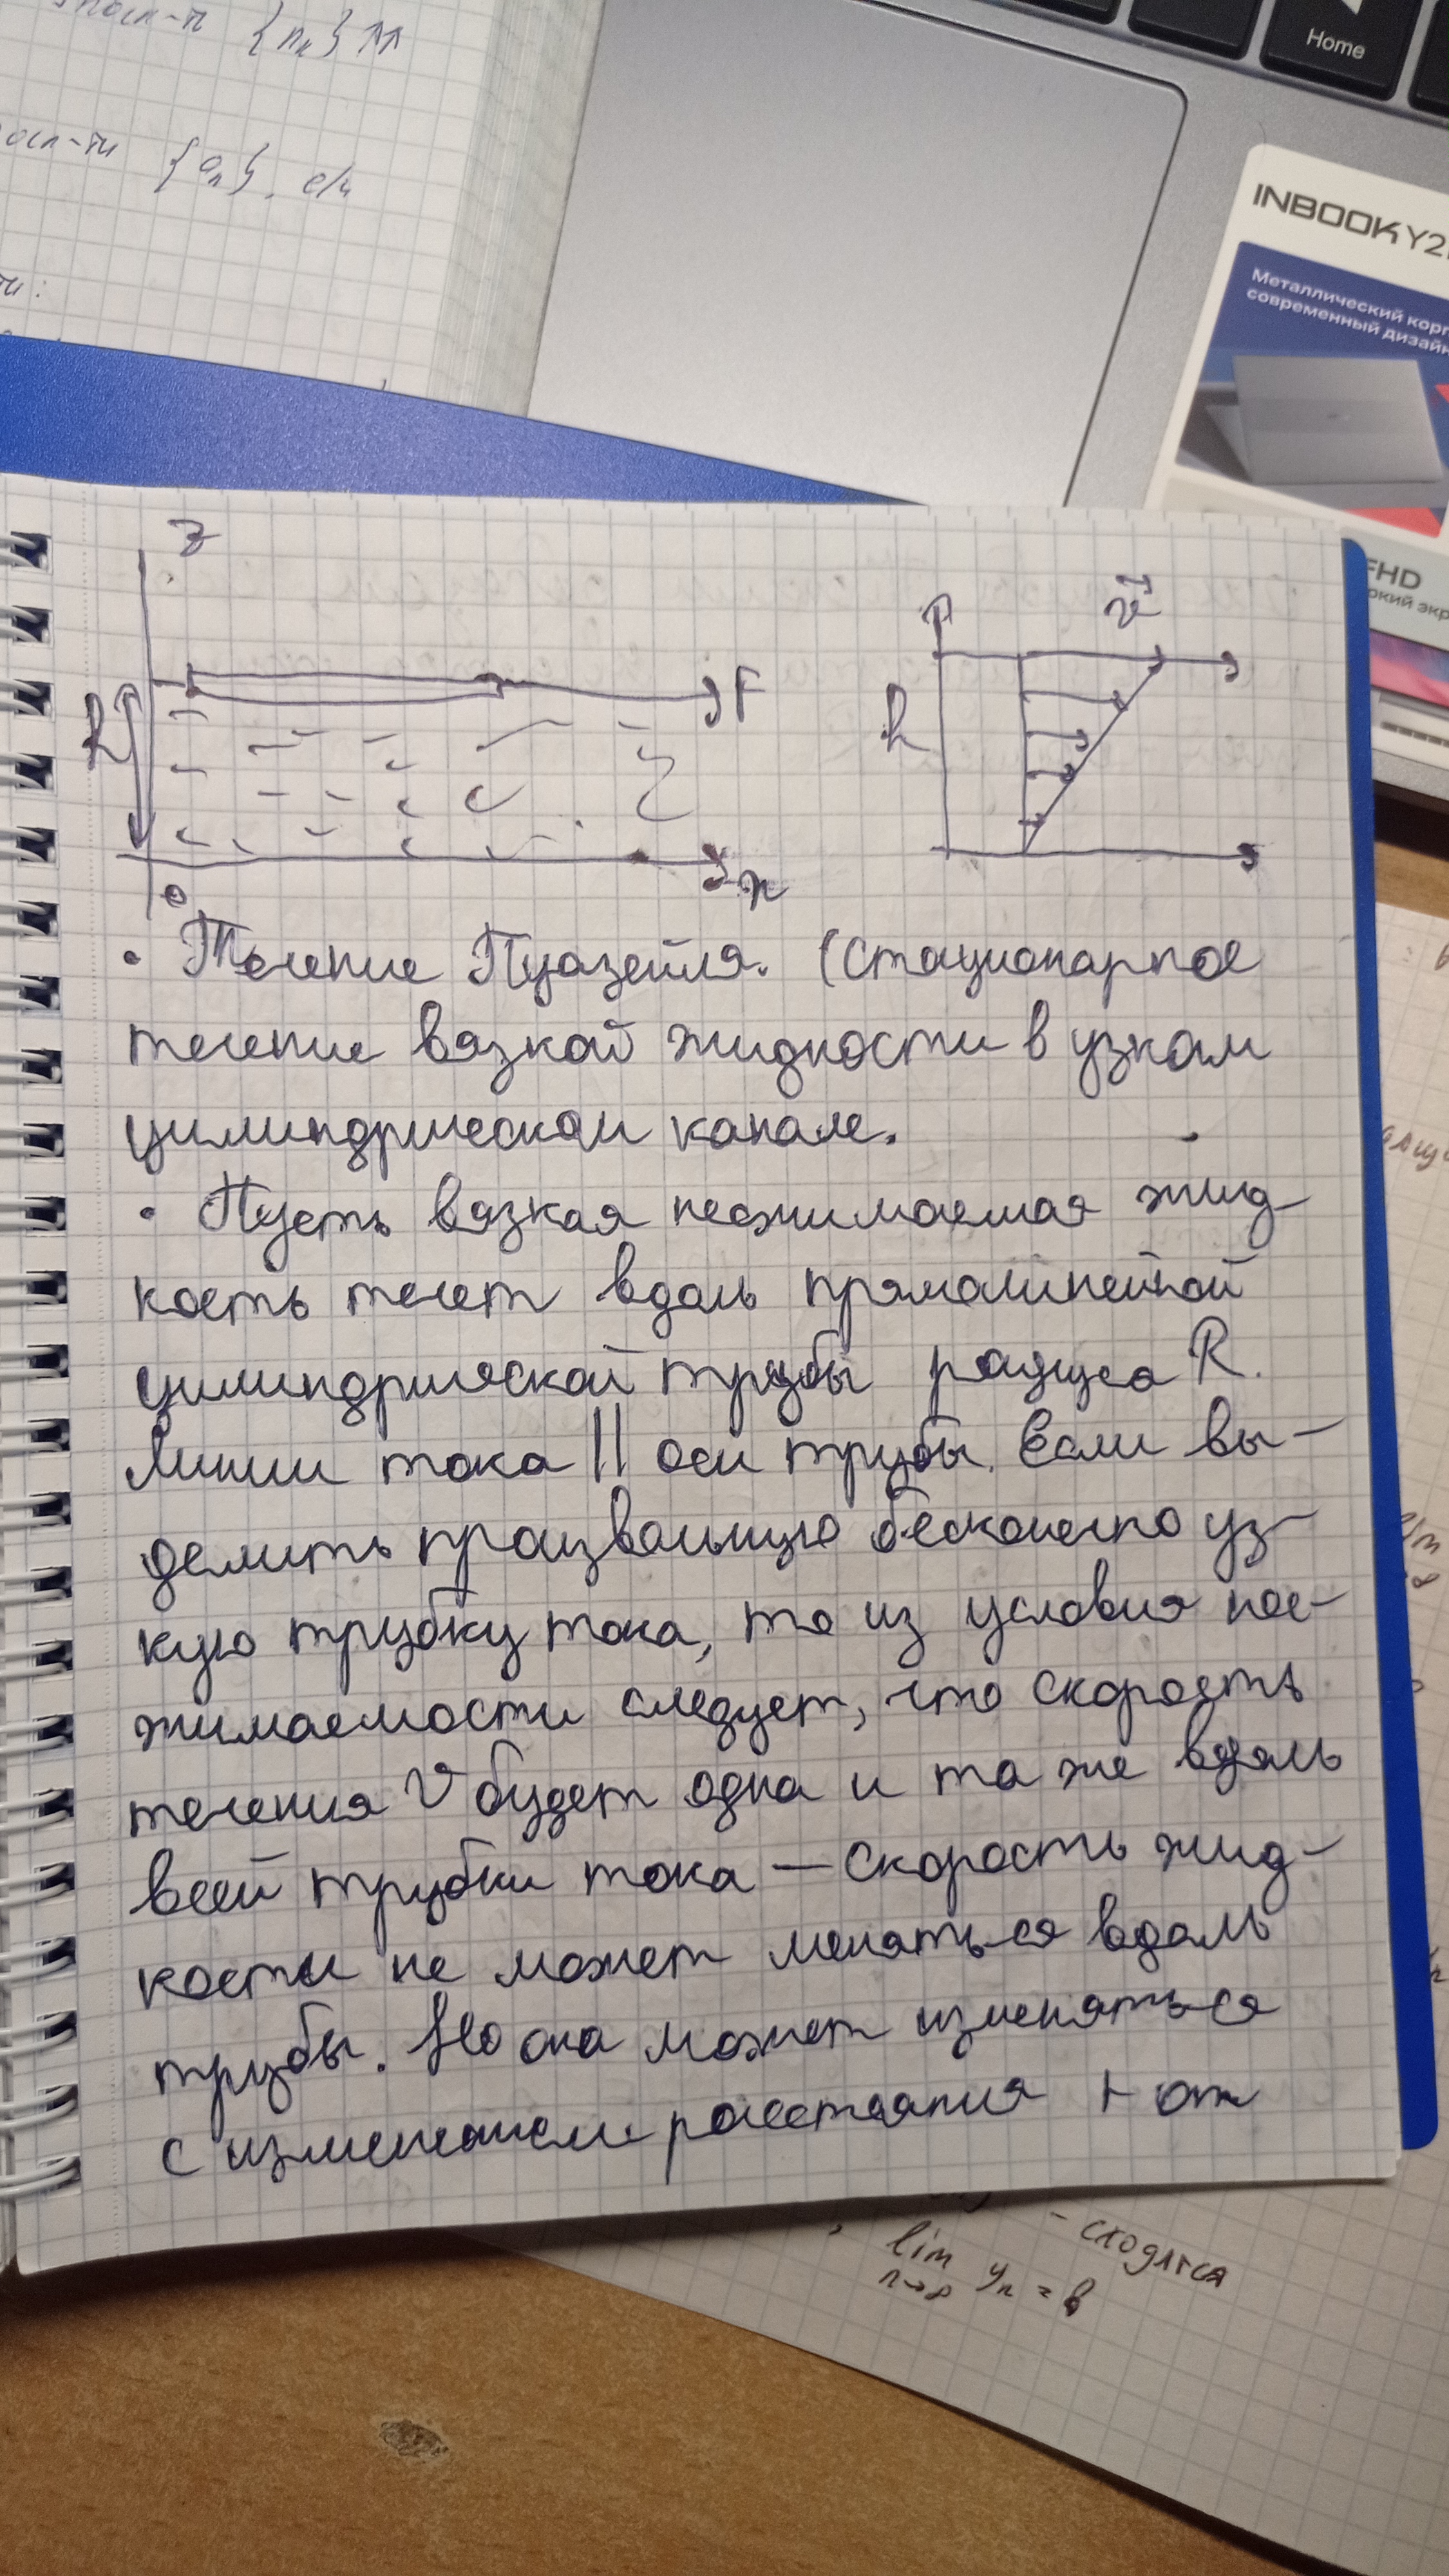 {nₖ} ↑↑
Home
{aₙ}. е/и
INBOOK Y2
Металлический корп
современный дизайн
FHD
окий экр
z
F
h
0
x
v
h
• Течение Пуазейля. (Стационарное
течение вязкой жидкости в узком
цилиндрическом канале.
• Пусть вязкая несжимаемая жид-
кость течет вдоль прямолинейной
цилиндрической трубы радиуса R.
Линии тока || оси трубы. Если вы-
делить произвольную бесконечно уз-
кую трубку тока, то из условия нес-
жимаемости следует, что скорость
течения V будет одна и та же вдоль
всей трубки тока — скорость жид-
кости не может меняться вдоль
трубы. Но она может изменяться
с изменением расстояния r от
- сходятся
lim yₙ = b
n→∞